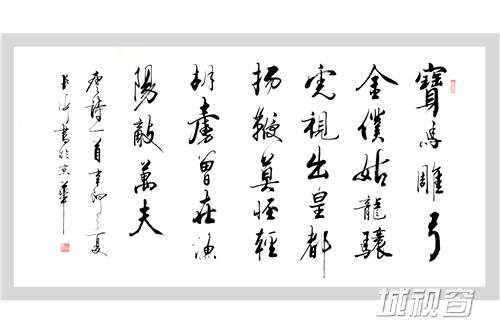 寶馬雕弓
金僕姑龍驤
虎視出皇都
揚鞭莫怪輕
胡虜曾在漁
陽敵萬夫
唐詩一首辛卯之夏
書於京華
城视窗